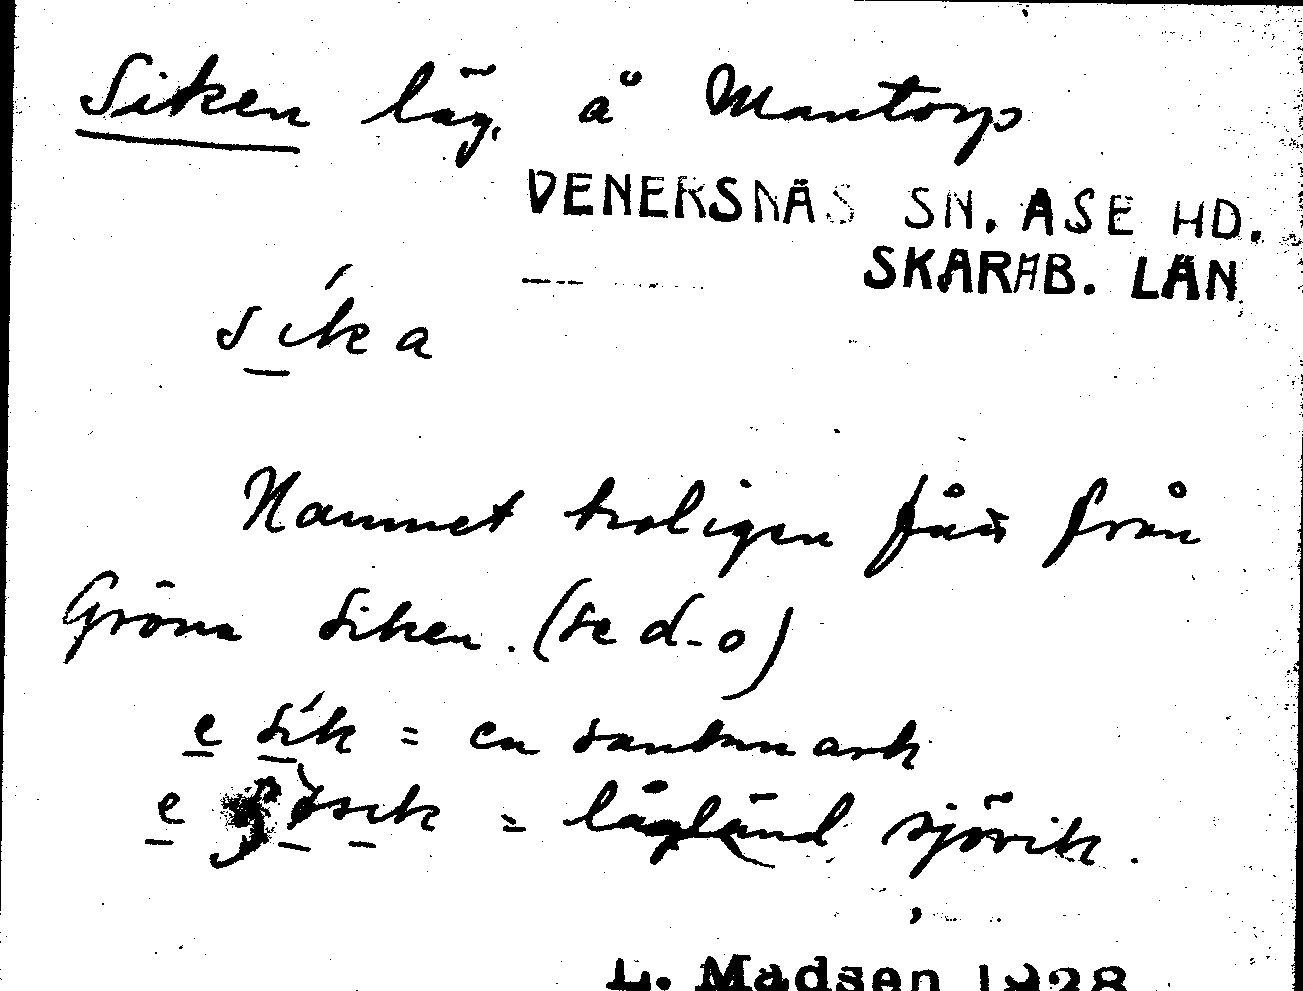 Siken läg. å Mantorp
VENERSNÄS SN. ÅSE HD.
SKARAB. LÄN
síka
Namnet troligen från
Gröna Siken. (se d-o)
e sík = en sandmark
e = lågländ sjövik.
L. Madsen 1928